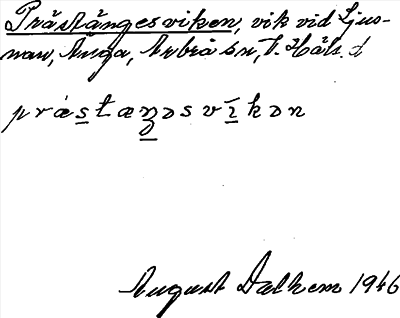 Prästängesviken, vik vid Ljus-
nan, Änga, Arbrå sn, t. Häls. d
präst æŋəsvīkən
August Dalhem 1946